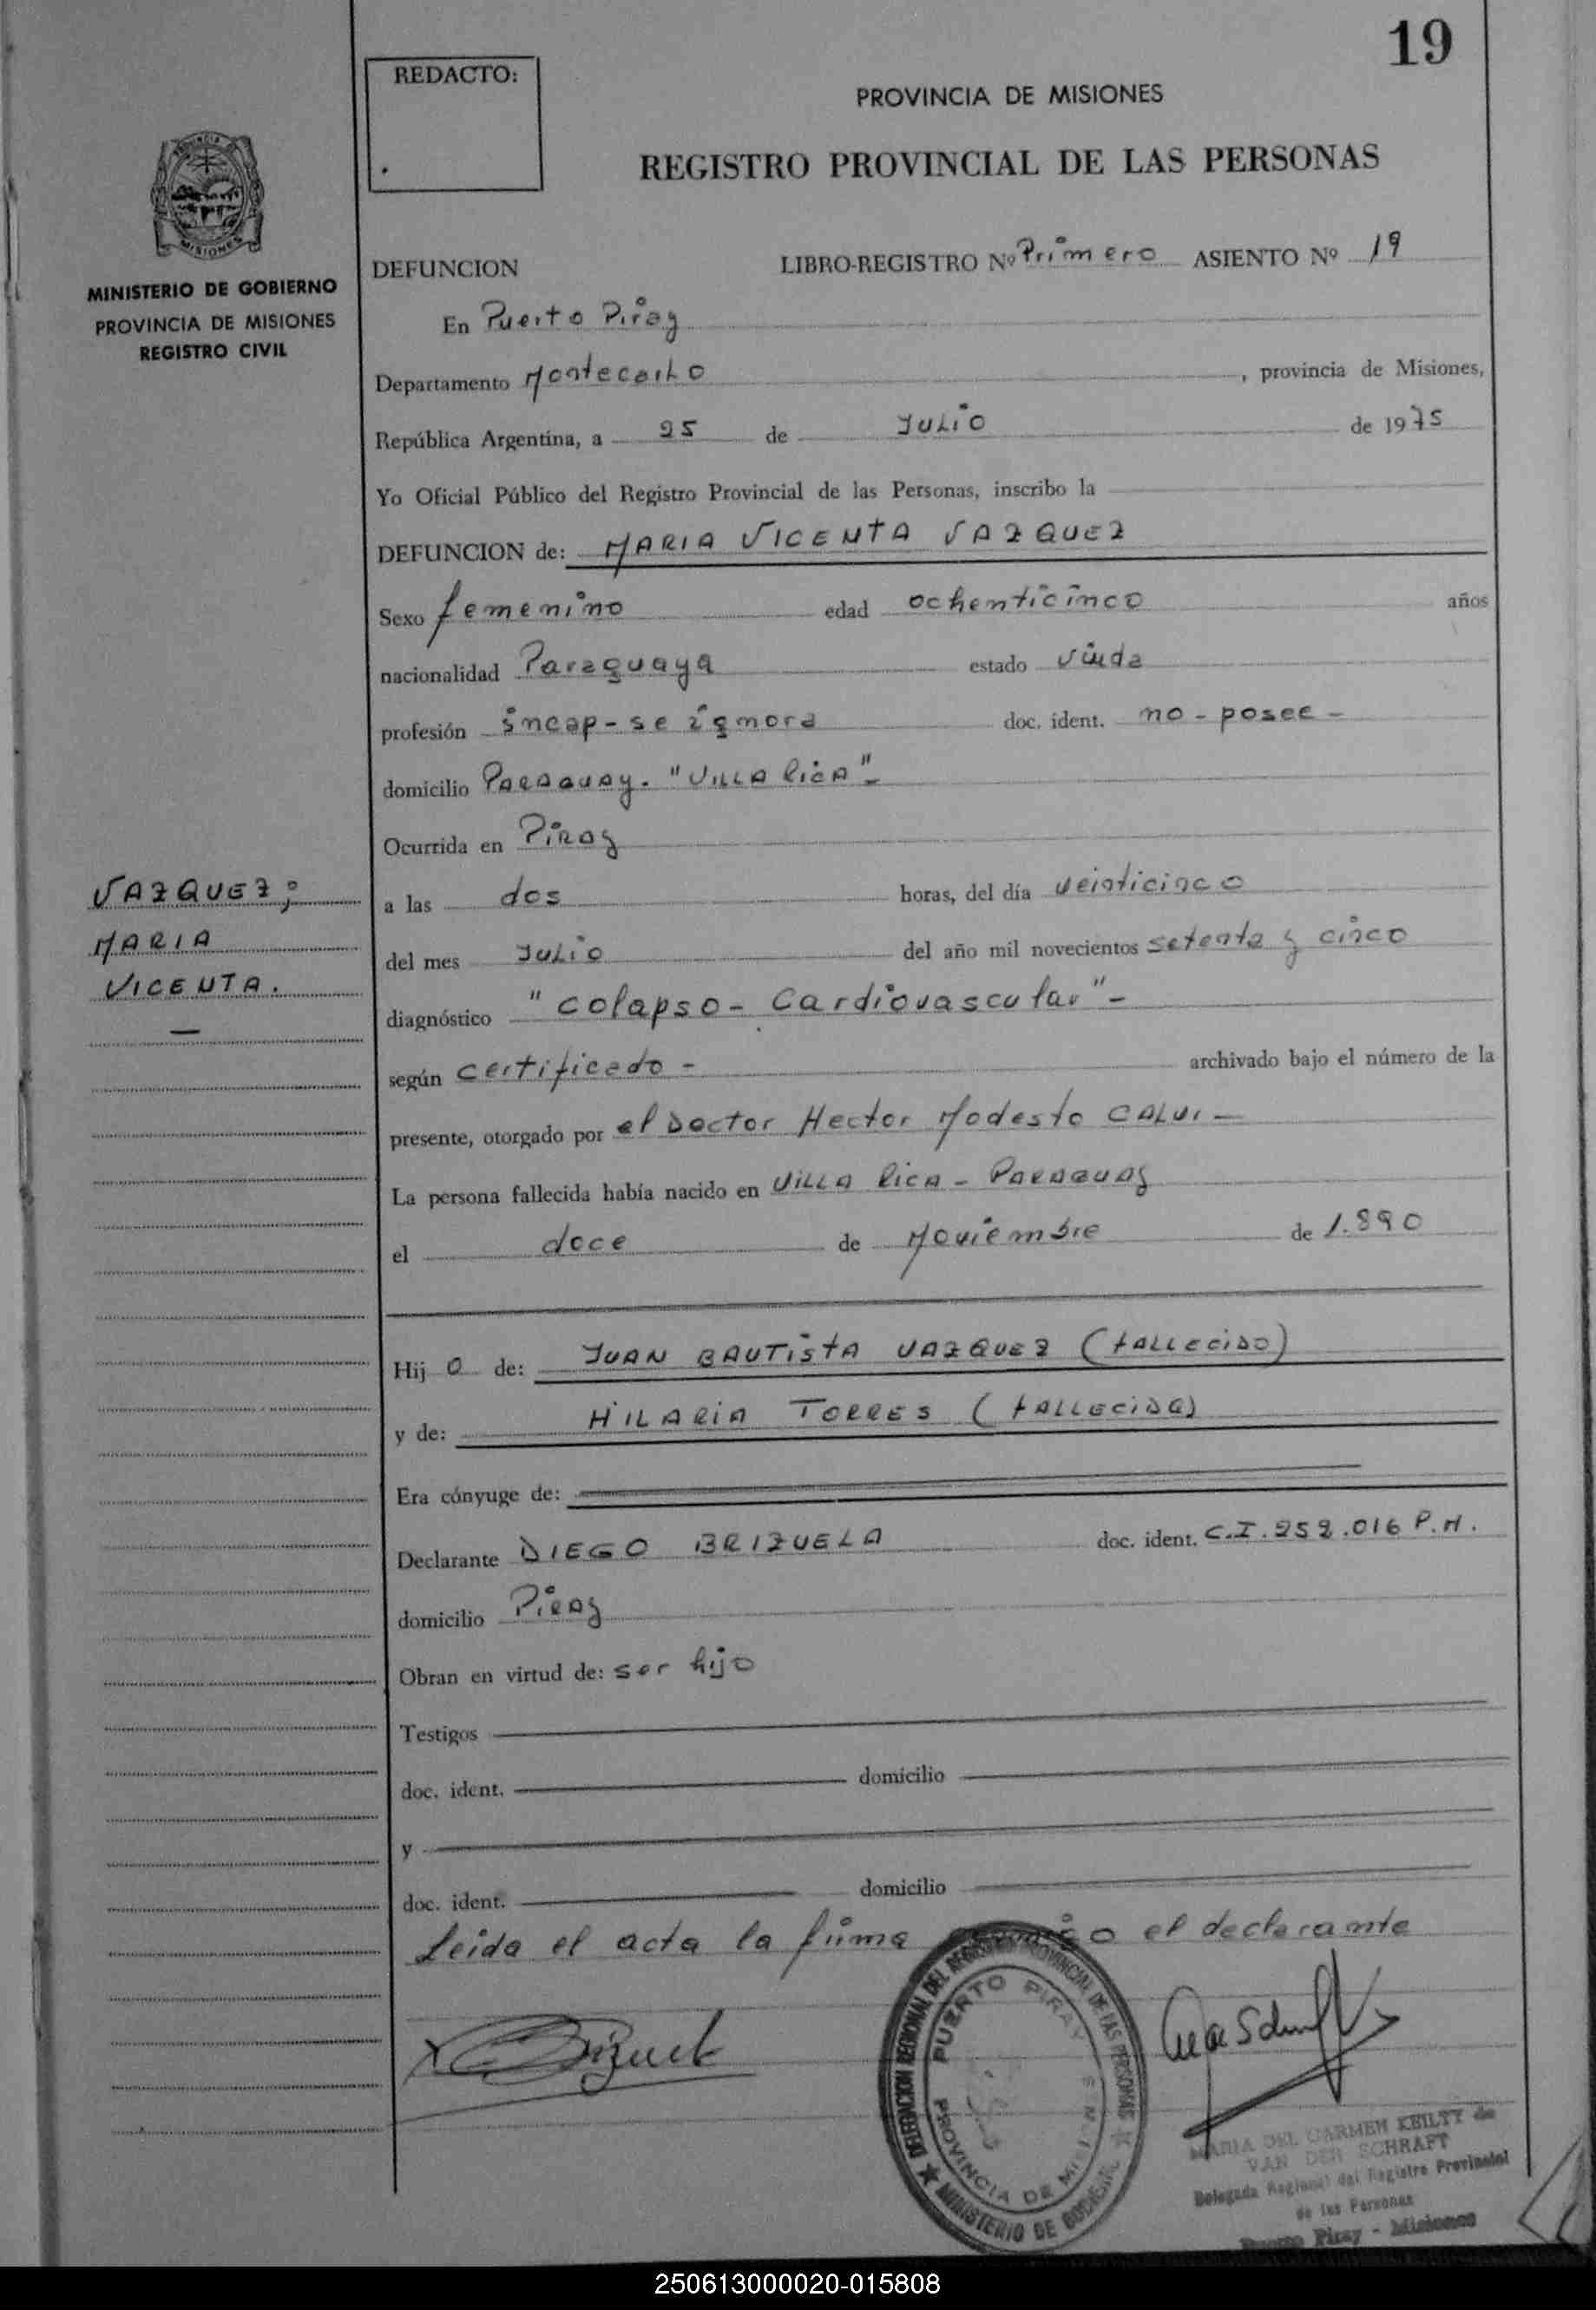 19
REDACTO:
PROVINCIA DE MISIONES
REGISTRO PROVINCIAL DE LAS PERSONAS
PROVINCIA
MISIONES
MINISTERIO DE GOBIERNO
PROVINCIA DE MISIONES
REGISTRO CIVIL
DEFUNCION LIBRO-REGISTRO Nº Primero ASIENTO Nº 19
En Puerto Piray
Departamento Montecarlo, provincia de Misiones,
República Argentina, a 25 de Julio de 1975
Yo Oficial Público del Registro Provincial de las Personas, inscribo la
DEFUNCION de: MARIA VICENTA VAZQUEZ
Sexo femenino edad ochenticinco años
nacionalidad Paraguaya estado viuda
profesión incap-se ignora doc. ident. no-posee-
domicilio Paraguay. "Villa Rica"-
Ocurrida en Piray
a las dos horas, del día veinticinco
del mes Julio del año mil novecientos setenta y cinco
diagnóstico "colapso-Cardiovascular"-
según certificado- archivado bajo el número de la
presente, otorgado por el Doctor Hector Modesto CALVI-
La persona fallecida había nacido en Villa Rica - Paraguay
el doce de Noviembre de 1.890
VAZQUEZ;
MARIA
VICENTA.
—
Hijo de: JUAN BAUTISTA VAZQUEZ (fallecido)
y de: HILARIA TORRES (fallecida)
Era cónyuge de:
Declarante DIEGO BRIZUELA doc. ident. C.I. 252.016 P.M.
domicilio Piray
Obran en virtud de: ser hijo
Testigos
doc. ident. domicilio
y
doc. ident. domicilio
Leida el acta la firma el declarante
DELEGACION REGIONAL DEL REGISTRO PROVINCIAL DE LAS PERSONAS
PUERTO PIRAY
PROVINCIA DE MISIONES
MINISTERIO DE GOBIERNO
MARIA DEL CARMEN KEILTY de
VAN DER SCHRAFT
Delegada Regional del Registro Provincial
de las Personas
Puerto Piray - Misiones
250613000020-015808